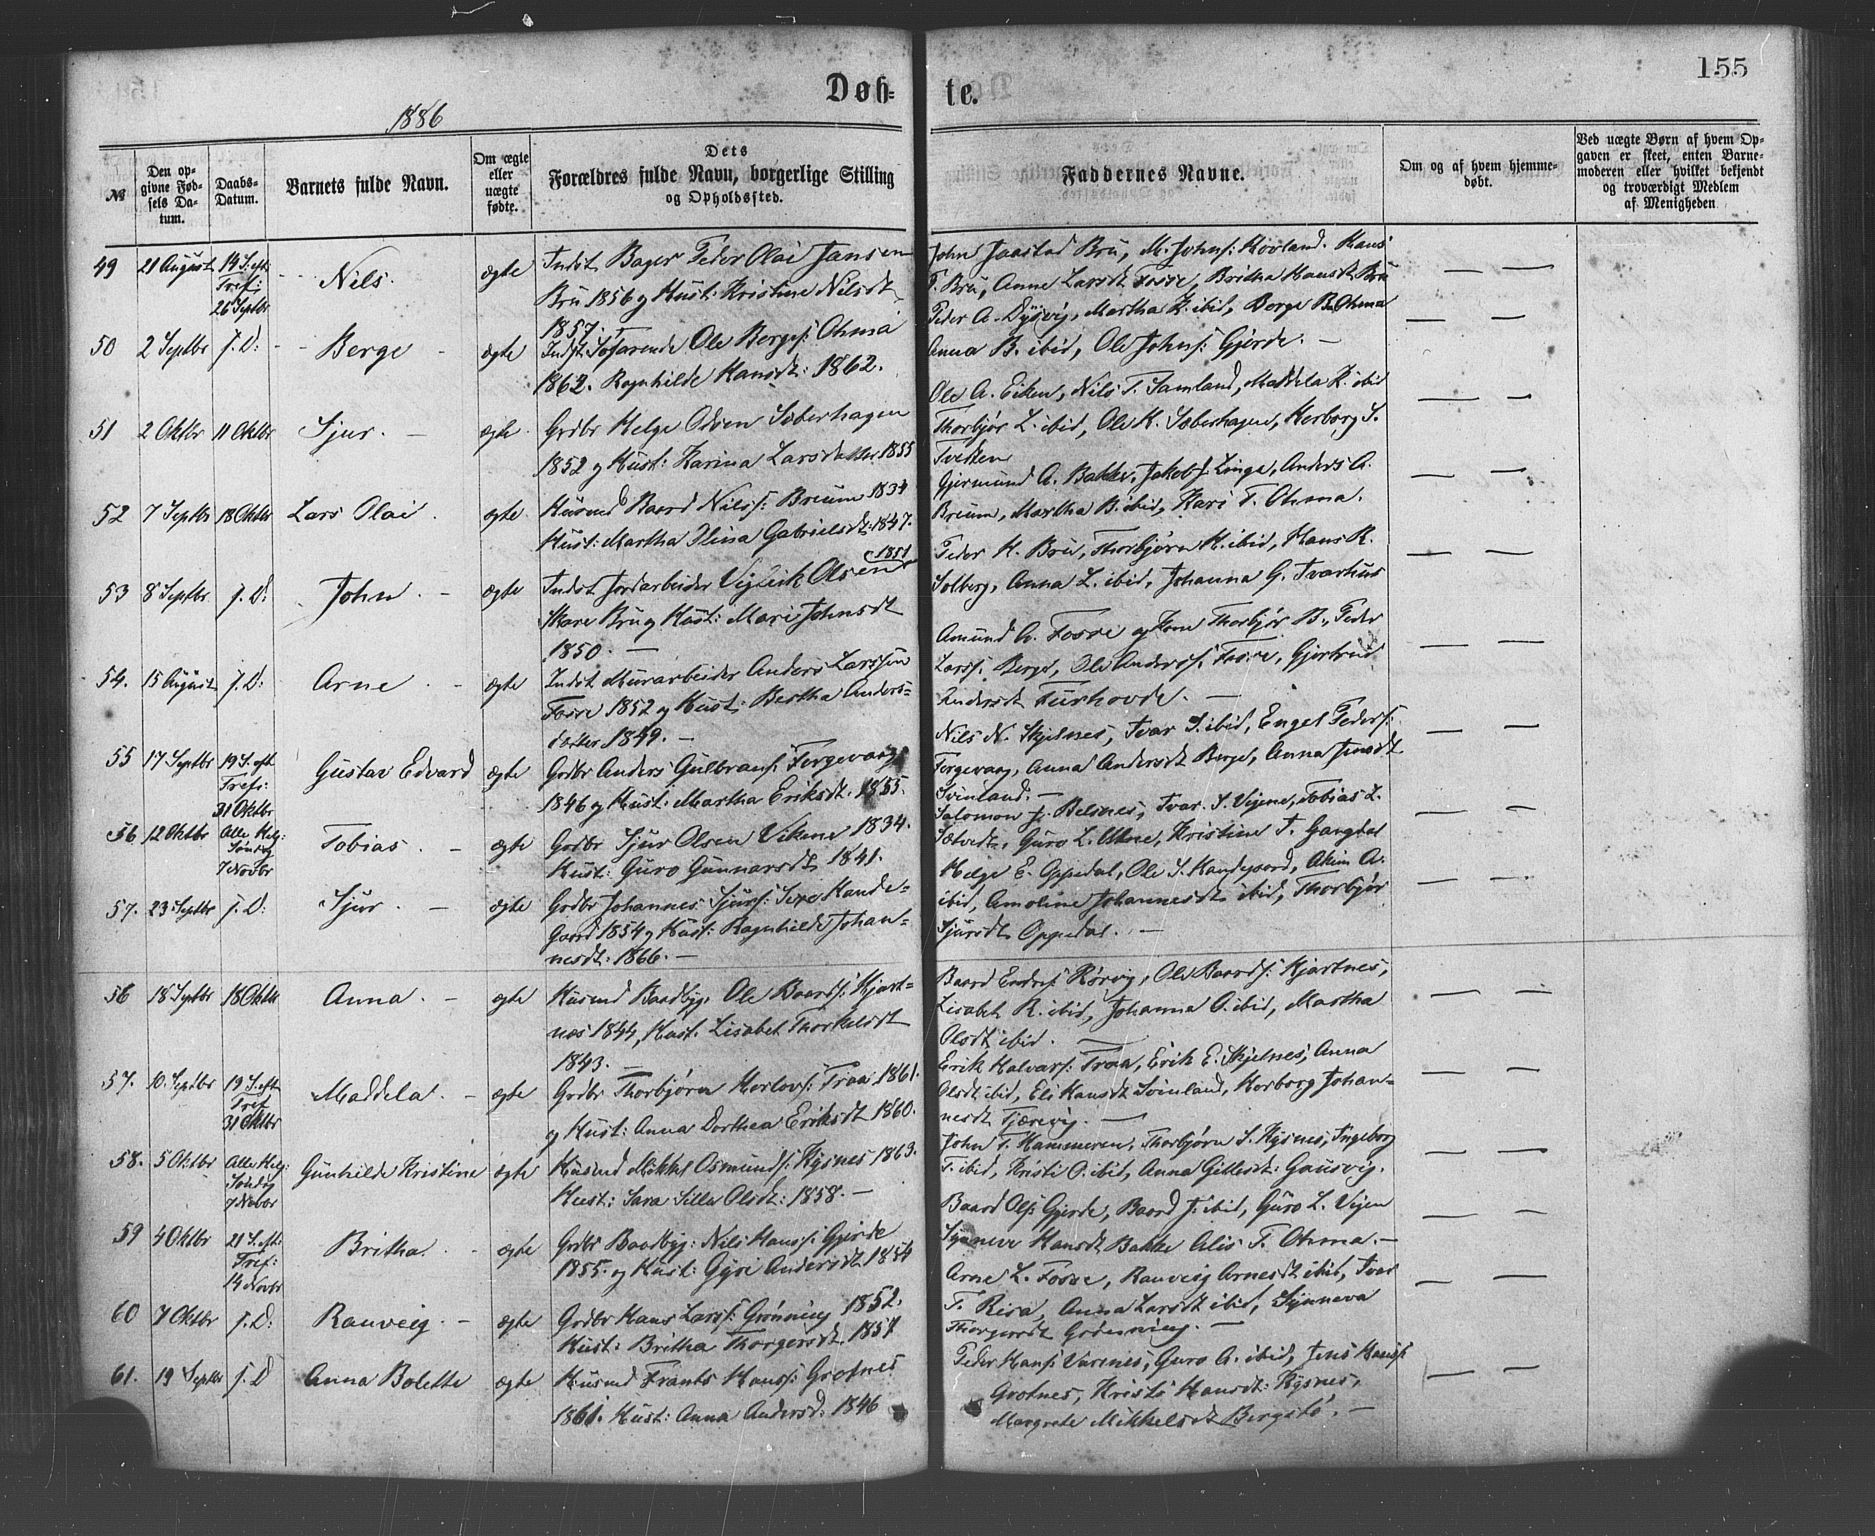 155
Døb=
te.
1886
№
Den op-
givne Fød-
sels Da-
tum.
Daabs-
Datum.
Barnets fulde Navn.
Om ægte
eller
uægte
født.
Dets
Forældres fulde Navn, borgerlige Stilling
og Opholdssted.
Faddernes Navne.
Om og af hvem hjemme-
døbt.
Ved uægte Børn af hvem Op-
gaven er skeet, enten Barne-
moderen eller hvilket bekjendt
og troværdigt Medlem
af Menigheden
49 21 August 14 S. eft. Tref: 26 Septbr Nils. ægte
Indst Bager Peder Olai Jansen
Bru 1856 og Hust: Kristine Nilsdt
1857.
John Jaastad Bru, M. Johns: Hovland. Hans
T. Bru, Anne Larsdt Fosse, Britha Hansdt Bru
50 2 Septbr J. D: Berge ægte
Indst Søfarende Ole Berges: Ohma
1862. Ragnhilde Hansdt: 1862.
Peder A. Dysvig, Martha K. ibid, Berge B. Ohma
Anna B. ibid, Ole Johns: Gjerde. —
51 2 Oktbr 11 Oktbr Sjur. — ægte
Grdbr Helge Odsen Soberhagen
1852 og Hust: Karina Larsdatter 1855
Ole A. Eiken, Nils T. Samland, Maddela K. ibid
Thorbjør L. ibid, Ole K. Soberhagen, Herborg S.
Tveiten
52 7 Septbr 18 Oktbr Lars Olai. ægte
Husmd Baard Nilss: Breum 1834
Hust: Martha Olina Gabrielsdt: 1847.
Gjermund A. Bakke, Jakob J. Linga, Anders A.
Breum, Martha B. ibid, Kari T. Ohma.
53 8 Septbr J. D: John. — ægte
Indst Jordarbeider Viglik Olsen 1851
Skare Bru og Hust: Mari Johnsdt
1850. —
Peder H. Bru, Thorbjørn H. ibid, Hans K.
Solberg, Anna L. ibid, Johanna G. Tvarhus
54. 15 August J. D: Arne. — ægte
Indst Murarbeider Anders Larssen
Fosse 1852 og Hust: Bertha Anders-
datter 1849. —
Amund A. Fosse og Kone Thorbjør B., Peder
Larss: Berge, Ole Anderss: Fosse, Gjertrud
Andersdt Furhovde. —
55 17 Septbr 19 S. eft Tref: 31 Oktbr Gustav Edvard ægte
Grdbr Anders Gulbrans: Fergevaag
1846 og Hust: Martha Eriksdt. 1855.
Nils N. Skjelnes, Ivar S. ibid, Engel Peders:
Fergevaag, Anna Andersdt Berge, Anna Jensdt
Svinland. —
56 12 Oktbr Alle Helg: Søndag 7 Novbr Tobias. — ægte
Grdbr Sjur Olsen Vikene 1834.
Hust: Guro Gunnarsdt 1841.
Salomon J. Belsnes, Ivar S. Vijene, Tobias L.
Sætvedt, Guro L. Utne, Kristine T. Gangdal
57. 23 Septbr J. D: Sjur. — ægte
Grdbr Johannes Sjurs: Sexe Kande-
gaard 1854 og Hust: Ragnhilde Johan-
nesdt: 1866. —
Helge E. Oppedal, Ole S. Kandegaard, Akim A.
ibid, Amoline Johannesdt ibid, Thorbjør
Sjursdt Oppedal. —
56 18 Septbr 18 Oktbr Anna. — ægte
Husmd Baadbyg: Ole Baards: Hjart-
næs 1844, Hust. Lisabet Thorkelsdt
1843. —
Baard Endres: Rørvig, Ole Baards: Hjartnes,
Lisabet R. ibid, Johanna O. ibid, Martha
Olsdt ibid. —
57. 10. Septbr 19 S. eft Tref 31 Oktbr Maddela. — ægte
Grdbr Thorbjørn Herlovs: Traa 1861.
og Hust: Anna Dorthea Eriksdt 1860.
Erik Halvars: Traa, Erik E. Skjelnes, Anna
Olsdt ibid, Eli Hansdt Svinland, Herborg Johan-
nesdt Tjærevig. —
58. 5 Oktbr Alle Helg: Søndag 7 Novbr Gunhilde Kristine ægte
Husmd Mikkel Osmunds: Kysnes 1863.
Hust: Sara Silla Olsdt: 1858. —
John T. Hammeren, Thorbjørn S. Kysnes, Ingeborg
T. ibid, Kristi O. ibid, Anna Gittlesdt: Gausvig.
59 4 Oktbr 21 S. eft: Tref: 14 Novbr Britha. — ægte
Grdbr Baadbyg: Nils Hanss: Gjerde
1855. og Hust: Gyri Andersdt 1854
Baard Ols: Gjerde, Baard J. ibid, Guro L. Vijen
Synneve Hansdt Bakke Alis T. Ohma. —
60 7 Oktbr J. D: Ranveig — ægte
Grdbr Hans Larss: Grønning 1852.
Hust: Britha Thorgersdt 1857
Arne L. Fosse, Ranveig Arnesdt ibid, Ivar
T. Risa, Anna Larsdt ibid, Synneva
Thorgersdt Grønning. —
61. 19 Septbr J. D Anna Bolette ægte
Husmd Frants Hanss: Grotnes
1861. Hust: Anna Andersd: 1846
Peder Hans: Varenes, Guro A. ibid, Jens Hanss:
Grotnes, Kristi Hansdt: Kysnes,
Margrete Mikkelsdt Bergstø. —